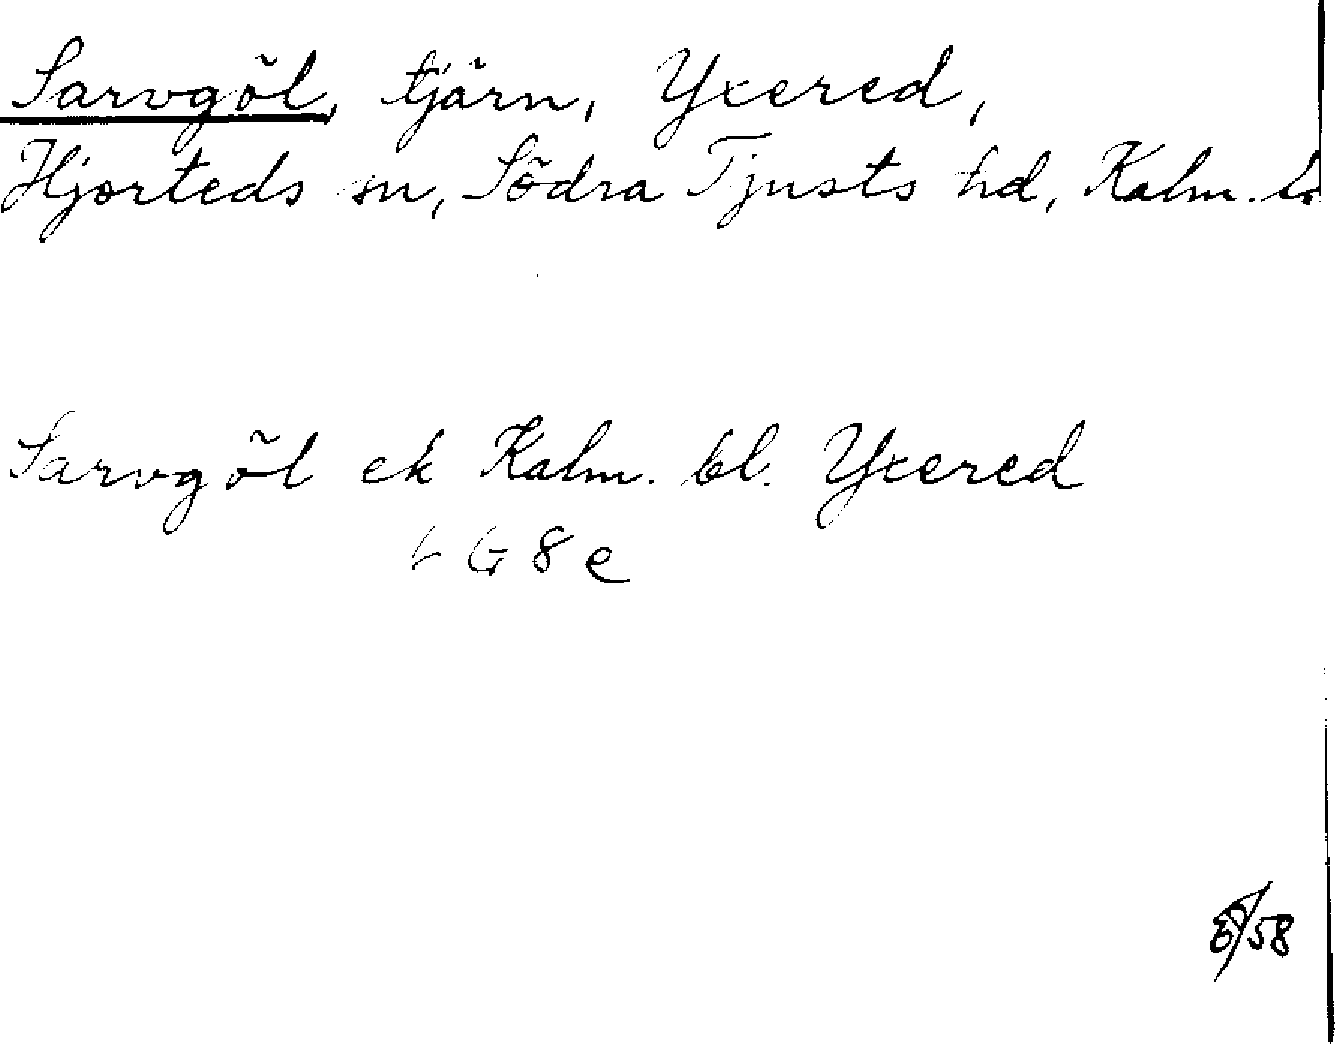 Sarvgöl, tjärn, Yxered,
Hjorteds sn, Södra Tjusts hd, Kalm. l.
Sarvgöl ek Kalm. bl. Yxered
G 8 e
/58